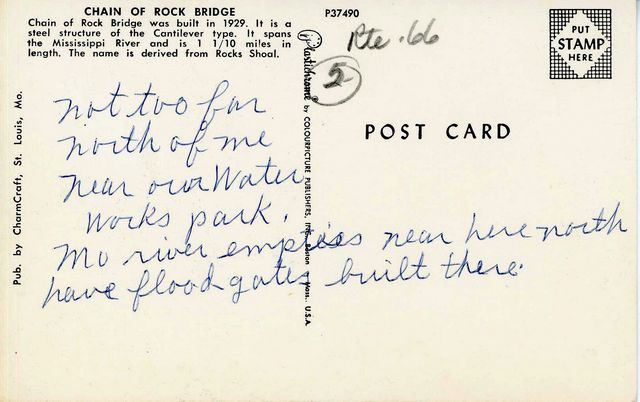 CHAIN OF ROCK BRIDGE
Chain of Rock Bridge was built in 1929. It is a
steel structure of the Cantilever type. It spans
the Mississippi River and is 1 1/10 miles in
length. The name is derived from Rocks Shoal.
P37490
Rte. 66
5
PUT
STAMP
HERE
POST CARD
Pub. by CharmCraft, St. Louis, Mo.
Plastichrome by COLOURPICTURE PUBLISHERS, INC., Boston, Mass. U.S.A.
not too far
north of me
near our Water
works park.
Mo river empties near here north
have flood gates built there.